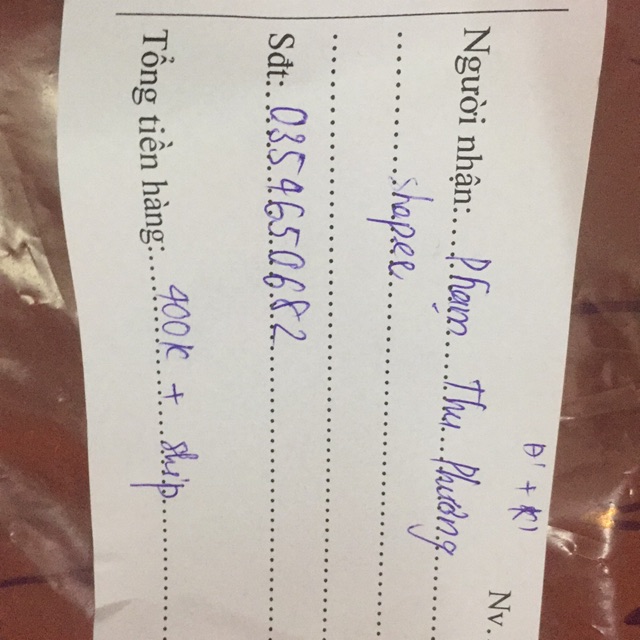 Nv.
Người nhận: Phạm Thu Phương
shopee
Sđt: 0354650682
Tổng tiền hàng: 400K + ship